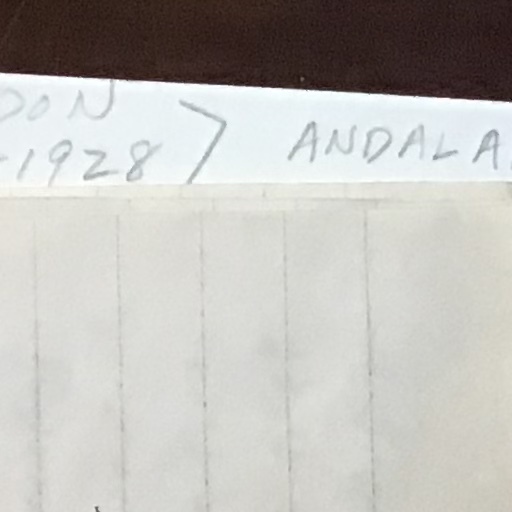 DON
-1928 > ANDALA